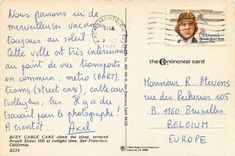 Nous passons ici de
merveilleuses vacances
toujours au soleil
Cette ville est très intéressante
au point de vue transports
en commun : metro (BART),
trams (street cars), cable cars
trolleybus, bus. Il y a du
travail pour le photographe!
A bientôt Axel
BUSY CABLE CARS climb the steep, terraced
Powell Street Hill at twilight time, San Francisco,
California.
B238
the Continental card
Monsieur R. Stevens
rue des Pinsons 105
B. 1160 Bruxelles
BELGIUM
EUROPE